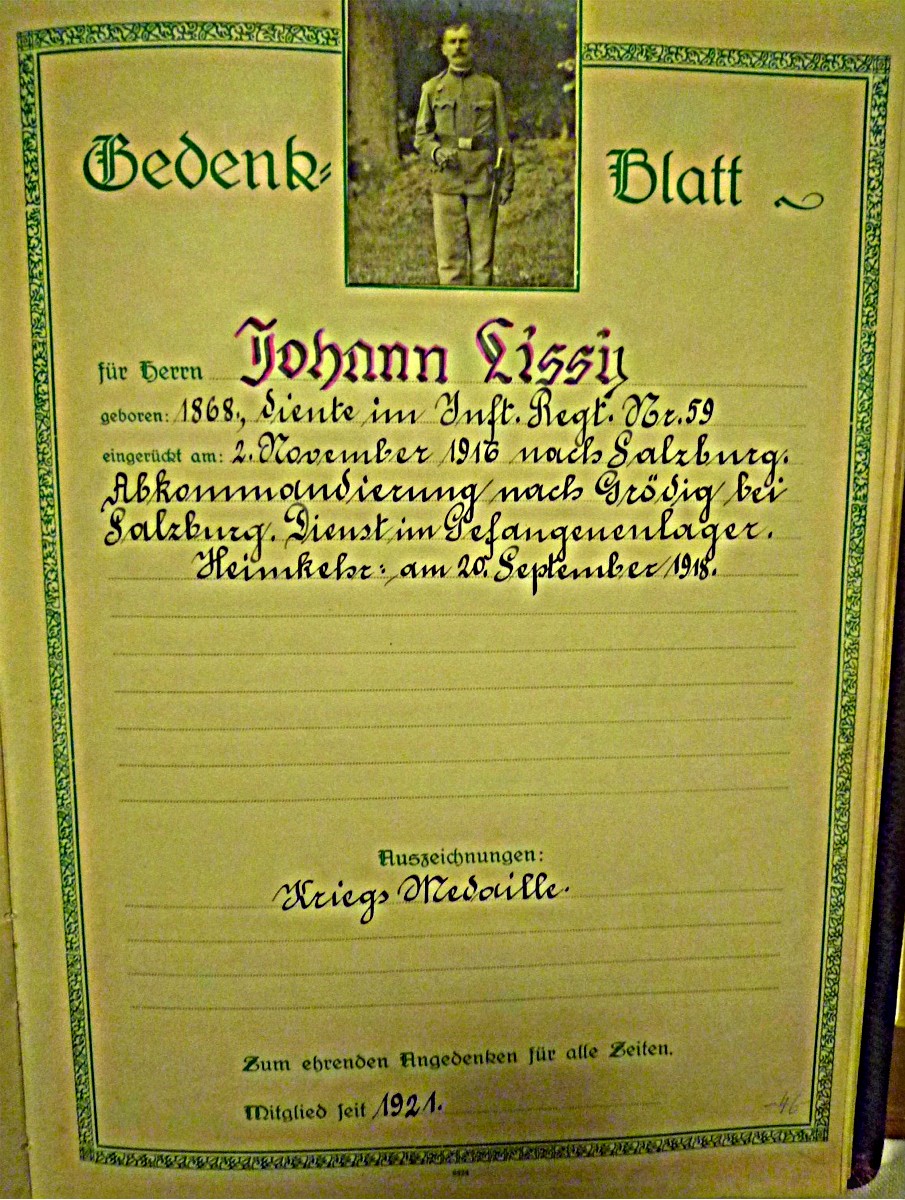 Gedenk- Blatt
für Herrn Johann Lissy
geboren: 1868., diente im Inft. Regt. Nr. 59
eingerückt am: 2. November 1916 nach Salzburg.
Abkommandierung nach Grödig bei
Salzburg. Dienst im Gefangenenlager.
Heimkehr: am 20. September 1918.
Auszeichnungen:
Kriegs Medaille.
Zum ehrenden Angedenken für alle Zeiten.
Mitglied seit 1921.